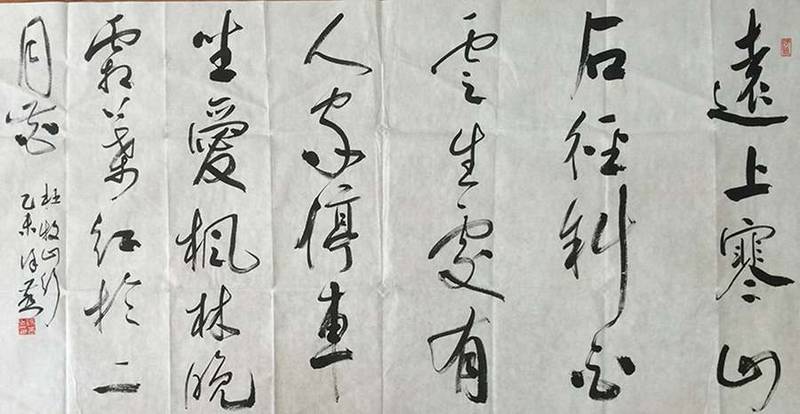 遠上寒山
石徑斜白
雲生處有
人家停車
坐愛楓林晚
霜葉紅於二
月花
杜牧山行
乙未